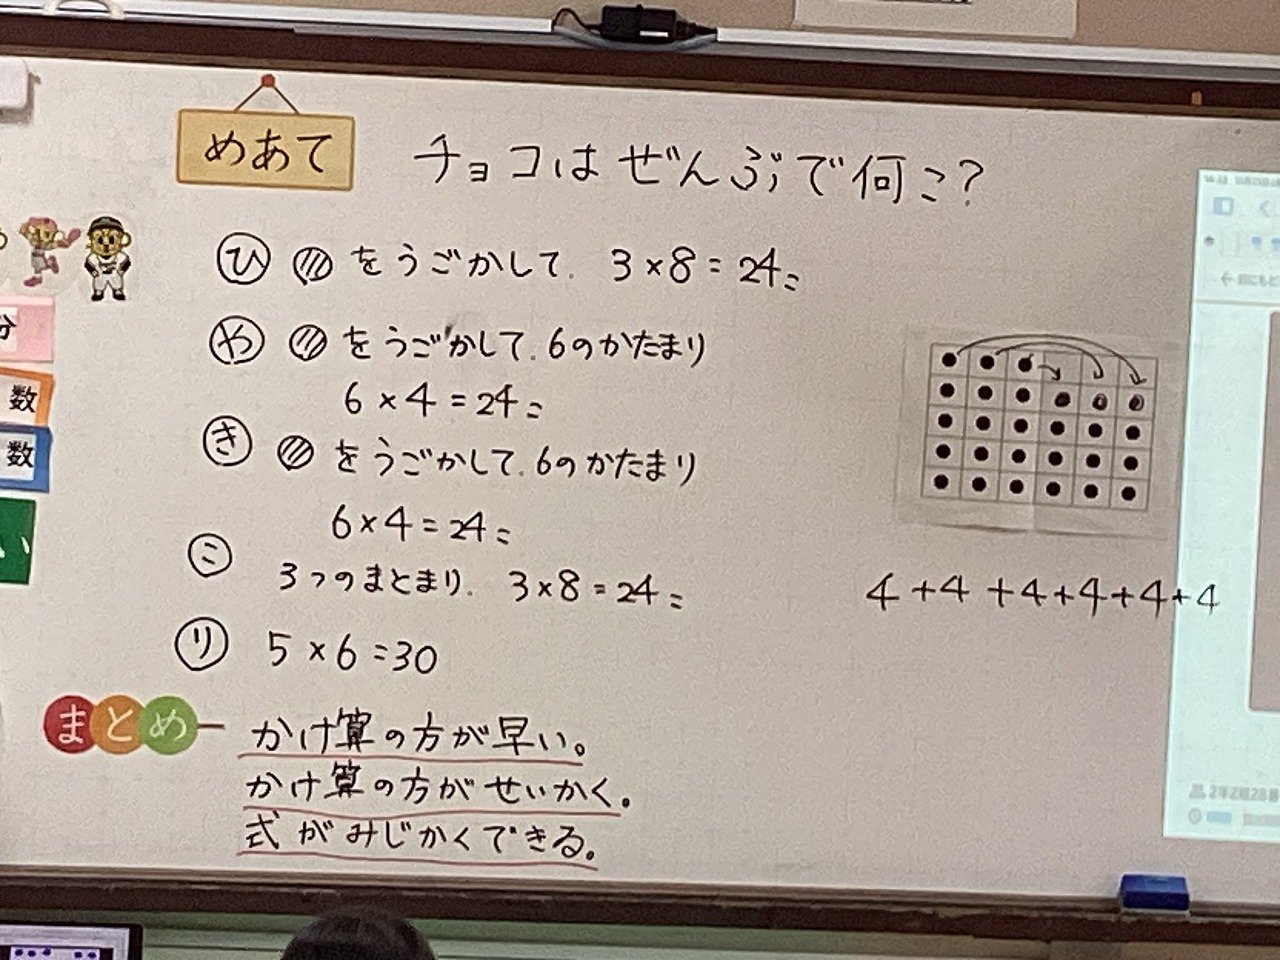 めあて チョコはぜんぶで何こ?
ひ をうごかして. 3×8=24
や をうごかして. 6のかたまり
6×4=24
き をうごかして. 6のかたまり
6×4=24
こ 3つのまとまり. 3×8=24
り 5×6=30
4+4+4+4+4+4
まとめ かけ算の方が早い。
かけ算の方がせいかく。
式がみじかくできる。
分
数
数
い